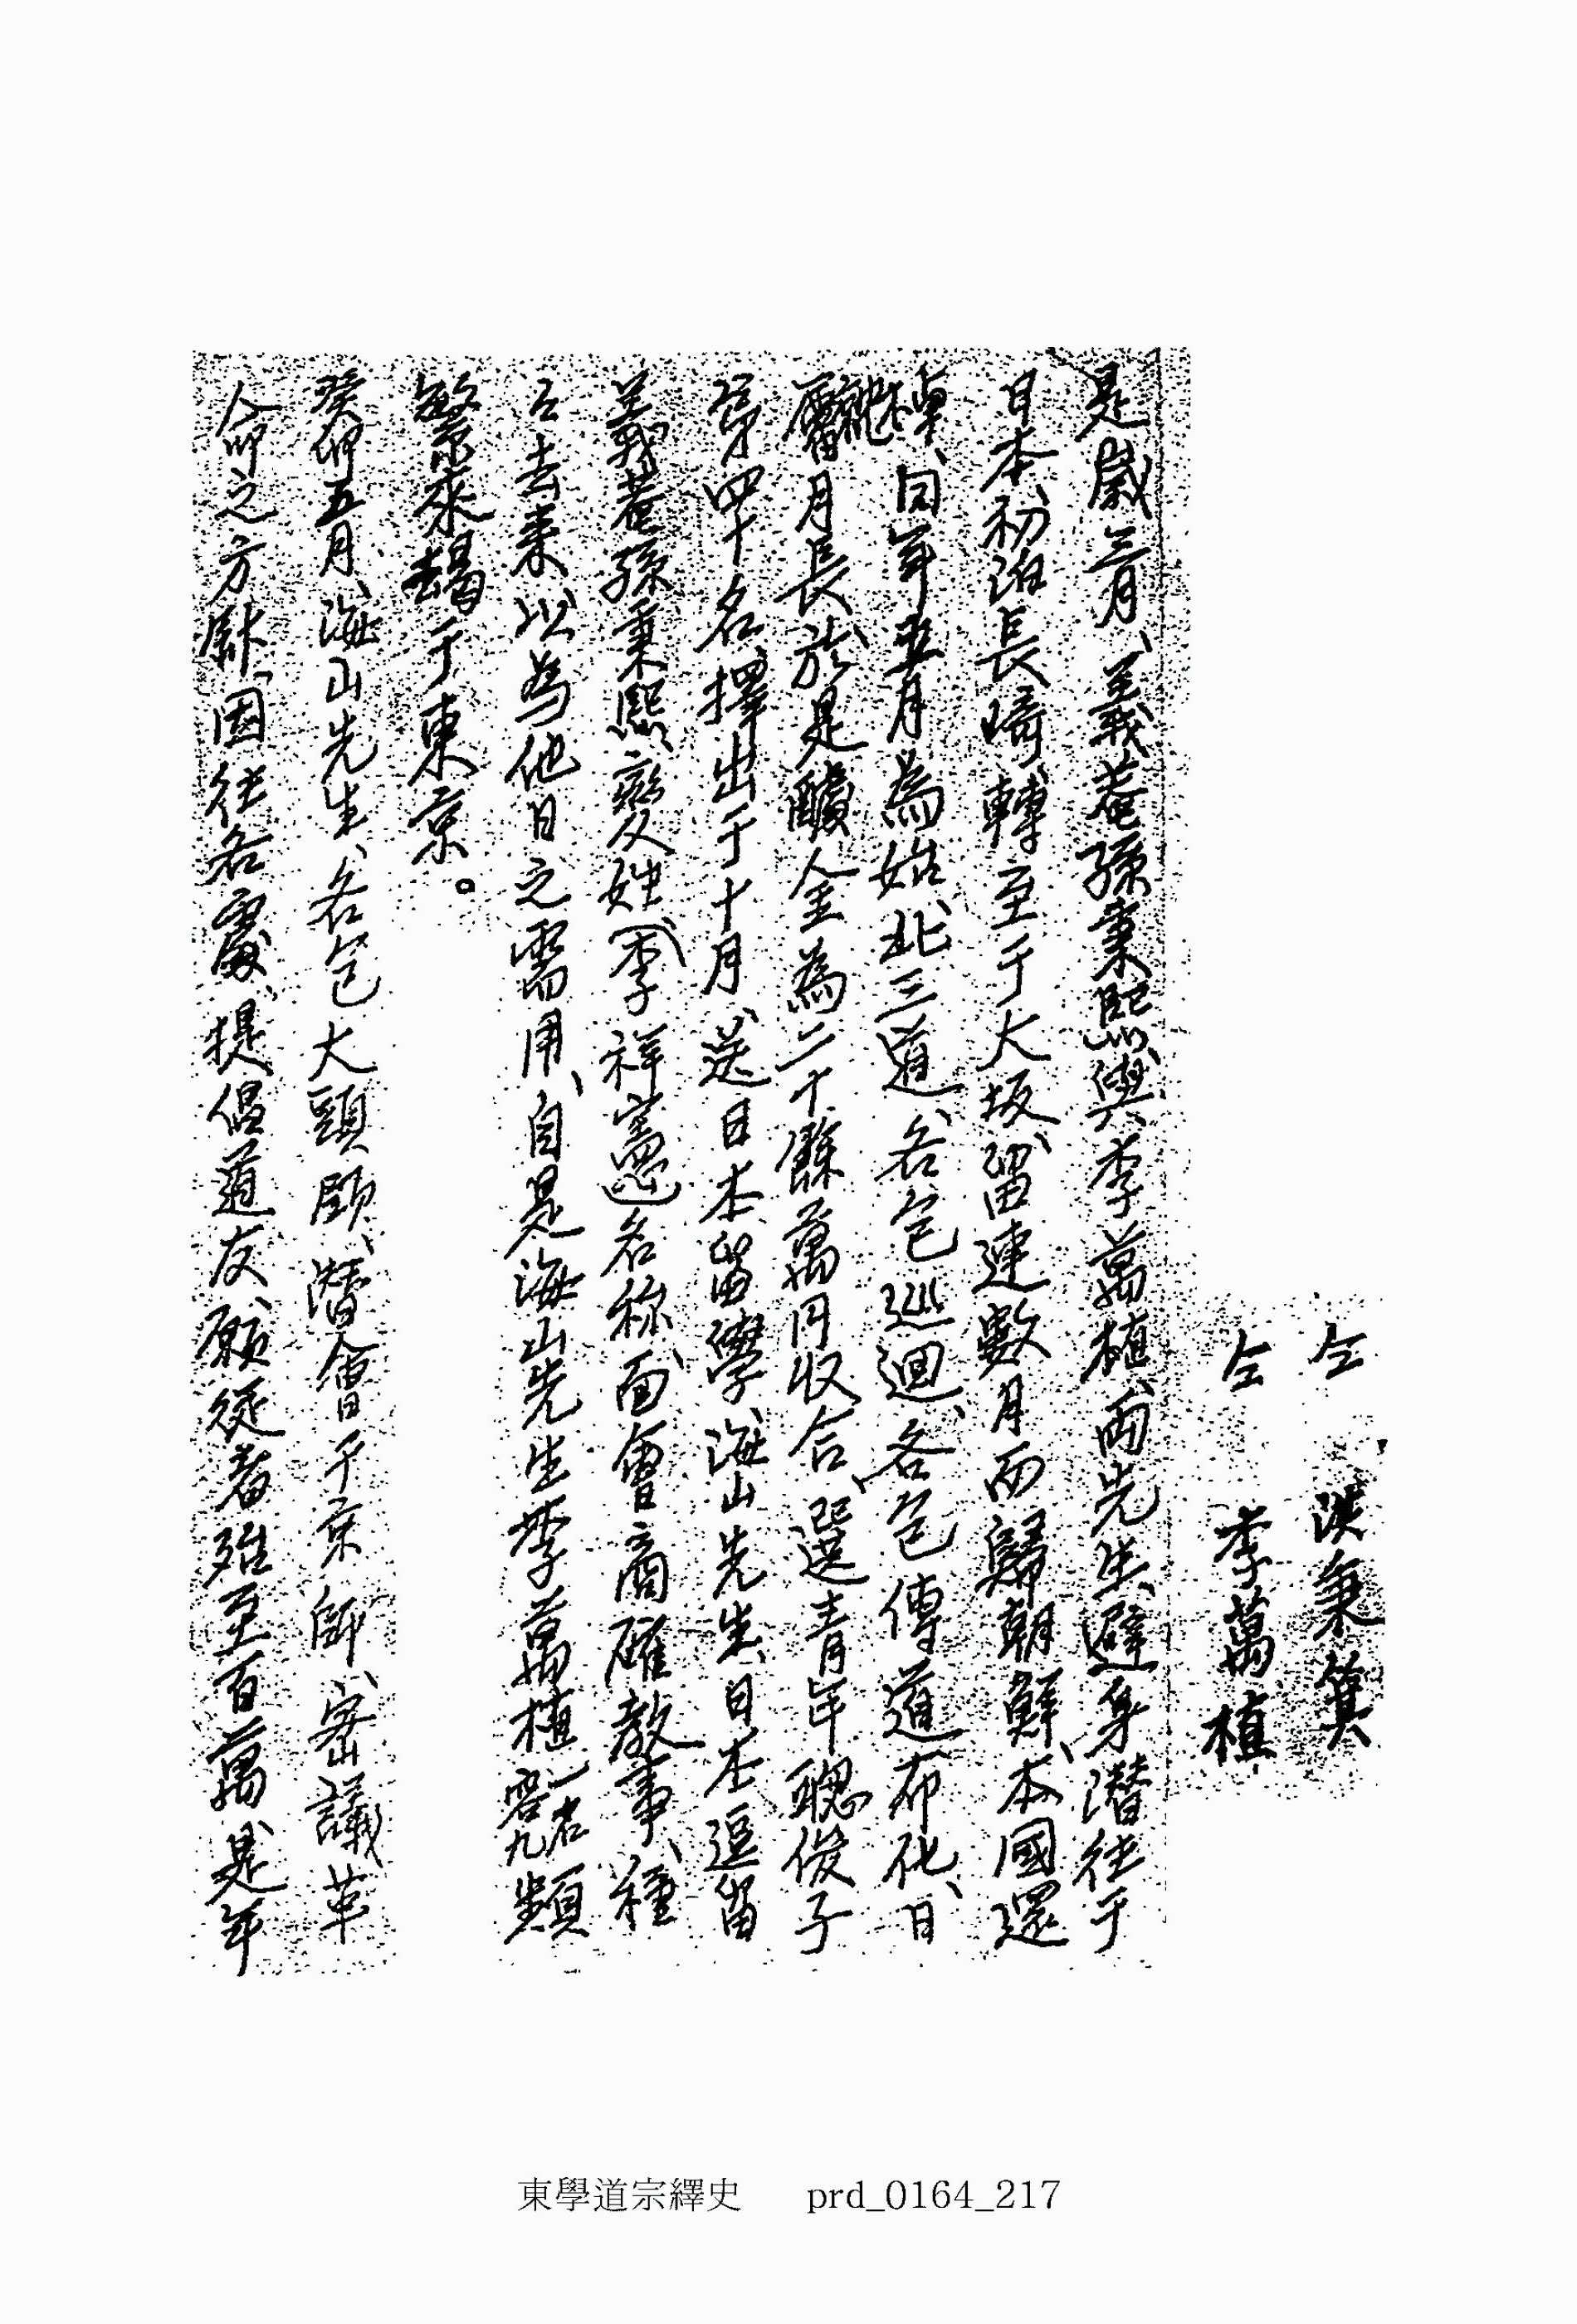 仝 洪秉箕
仝 李萬植
是歲三月、義菴孫秉熙與李萬植、兩先生、避身潛往于
日本、初泊長崎、轉至于大坂、留連數月而歸朝鮮、本國還
棹、同年五月為始、北三道、各包巡迴、各包傳道布化、日
月長、於是醵金為二十餘萬円收合、選青年聰俊子
弟四十名、擇出于十月、送日本留學、海山先生、日本逗留
義菴孫秉熙變姓(李祥憲)名称、面會商確教事、種
〻去来、以為他日之需用、自是海山先生李萬植 頻
繁来 于東京。
癸卯五月、海山先生、各包大頭領、潛會于京師、密議革
命之方 、因往各處、提倡道友、願從者殆至百萬、是年
東學道宗繹史 prd_0164_217